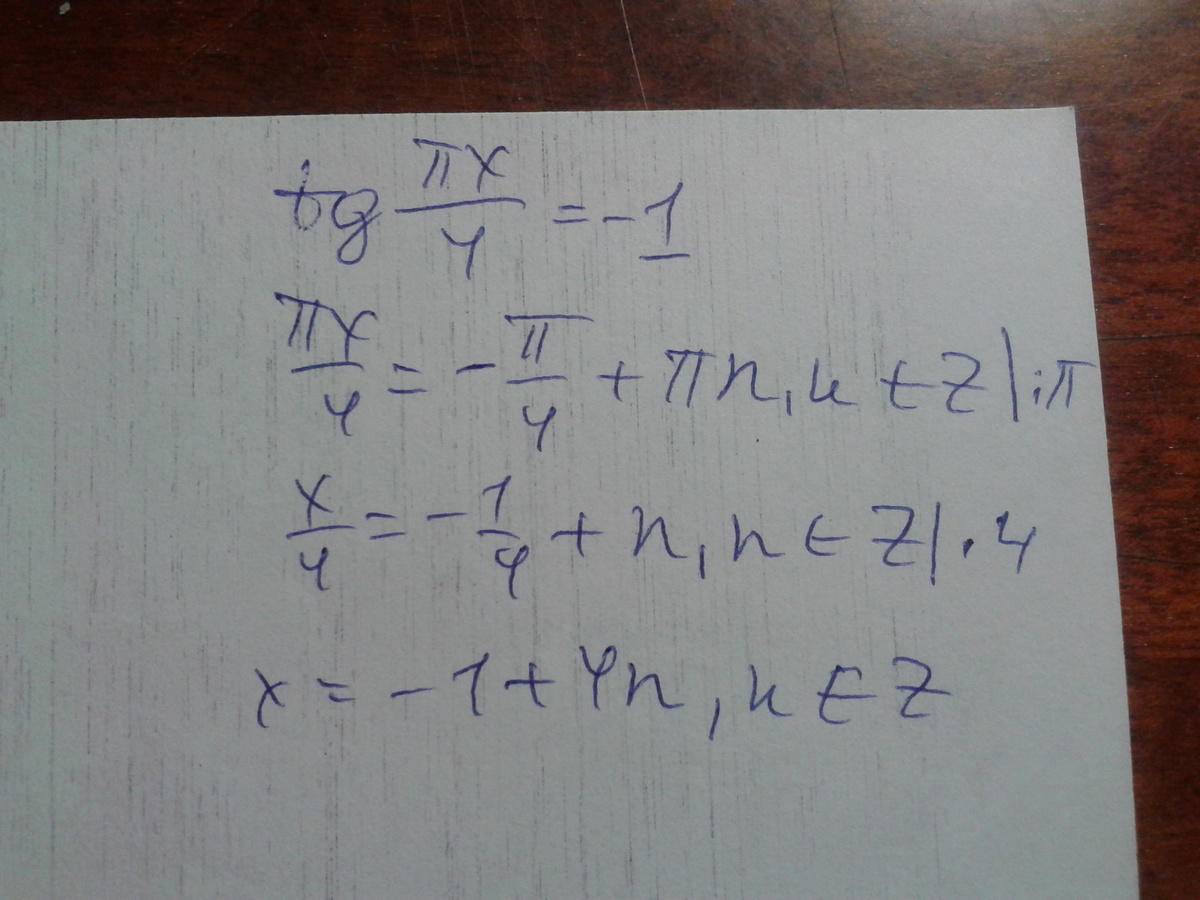 tg πx/4 = -1
πx/4 = -π/4 + πn, n ∈ Z |:π
x/4 = -1/4 + n, n ∈ Z |·4
x = -1 + 4n, n ∈ Z